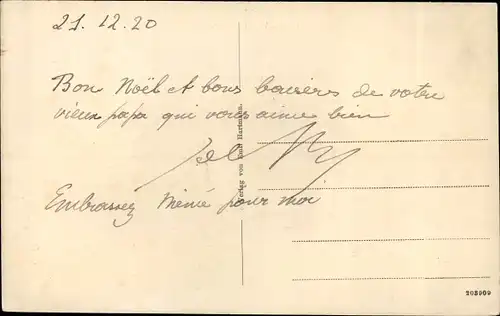 21.12.20
Bon Noël et bons baisers de votre
vieux papa qui vous aime bien
Embrassez Mémé pour moi
Verlag von Emil Hartmann,
203909